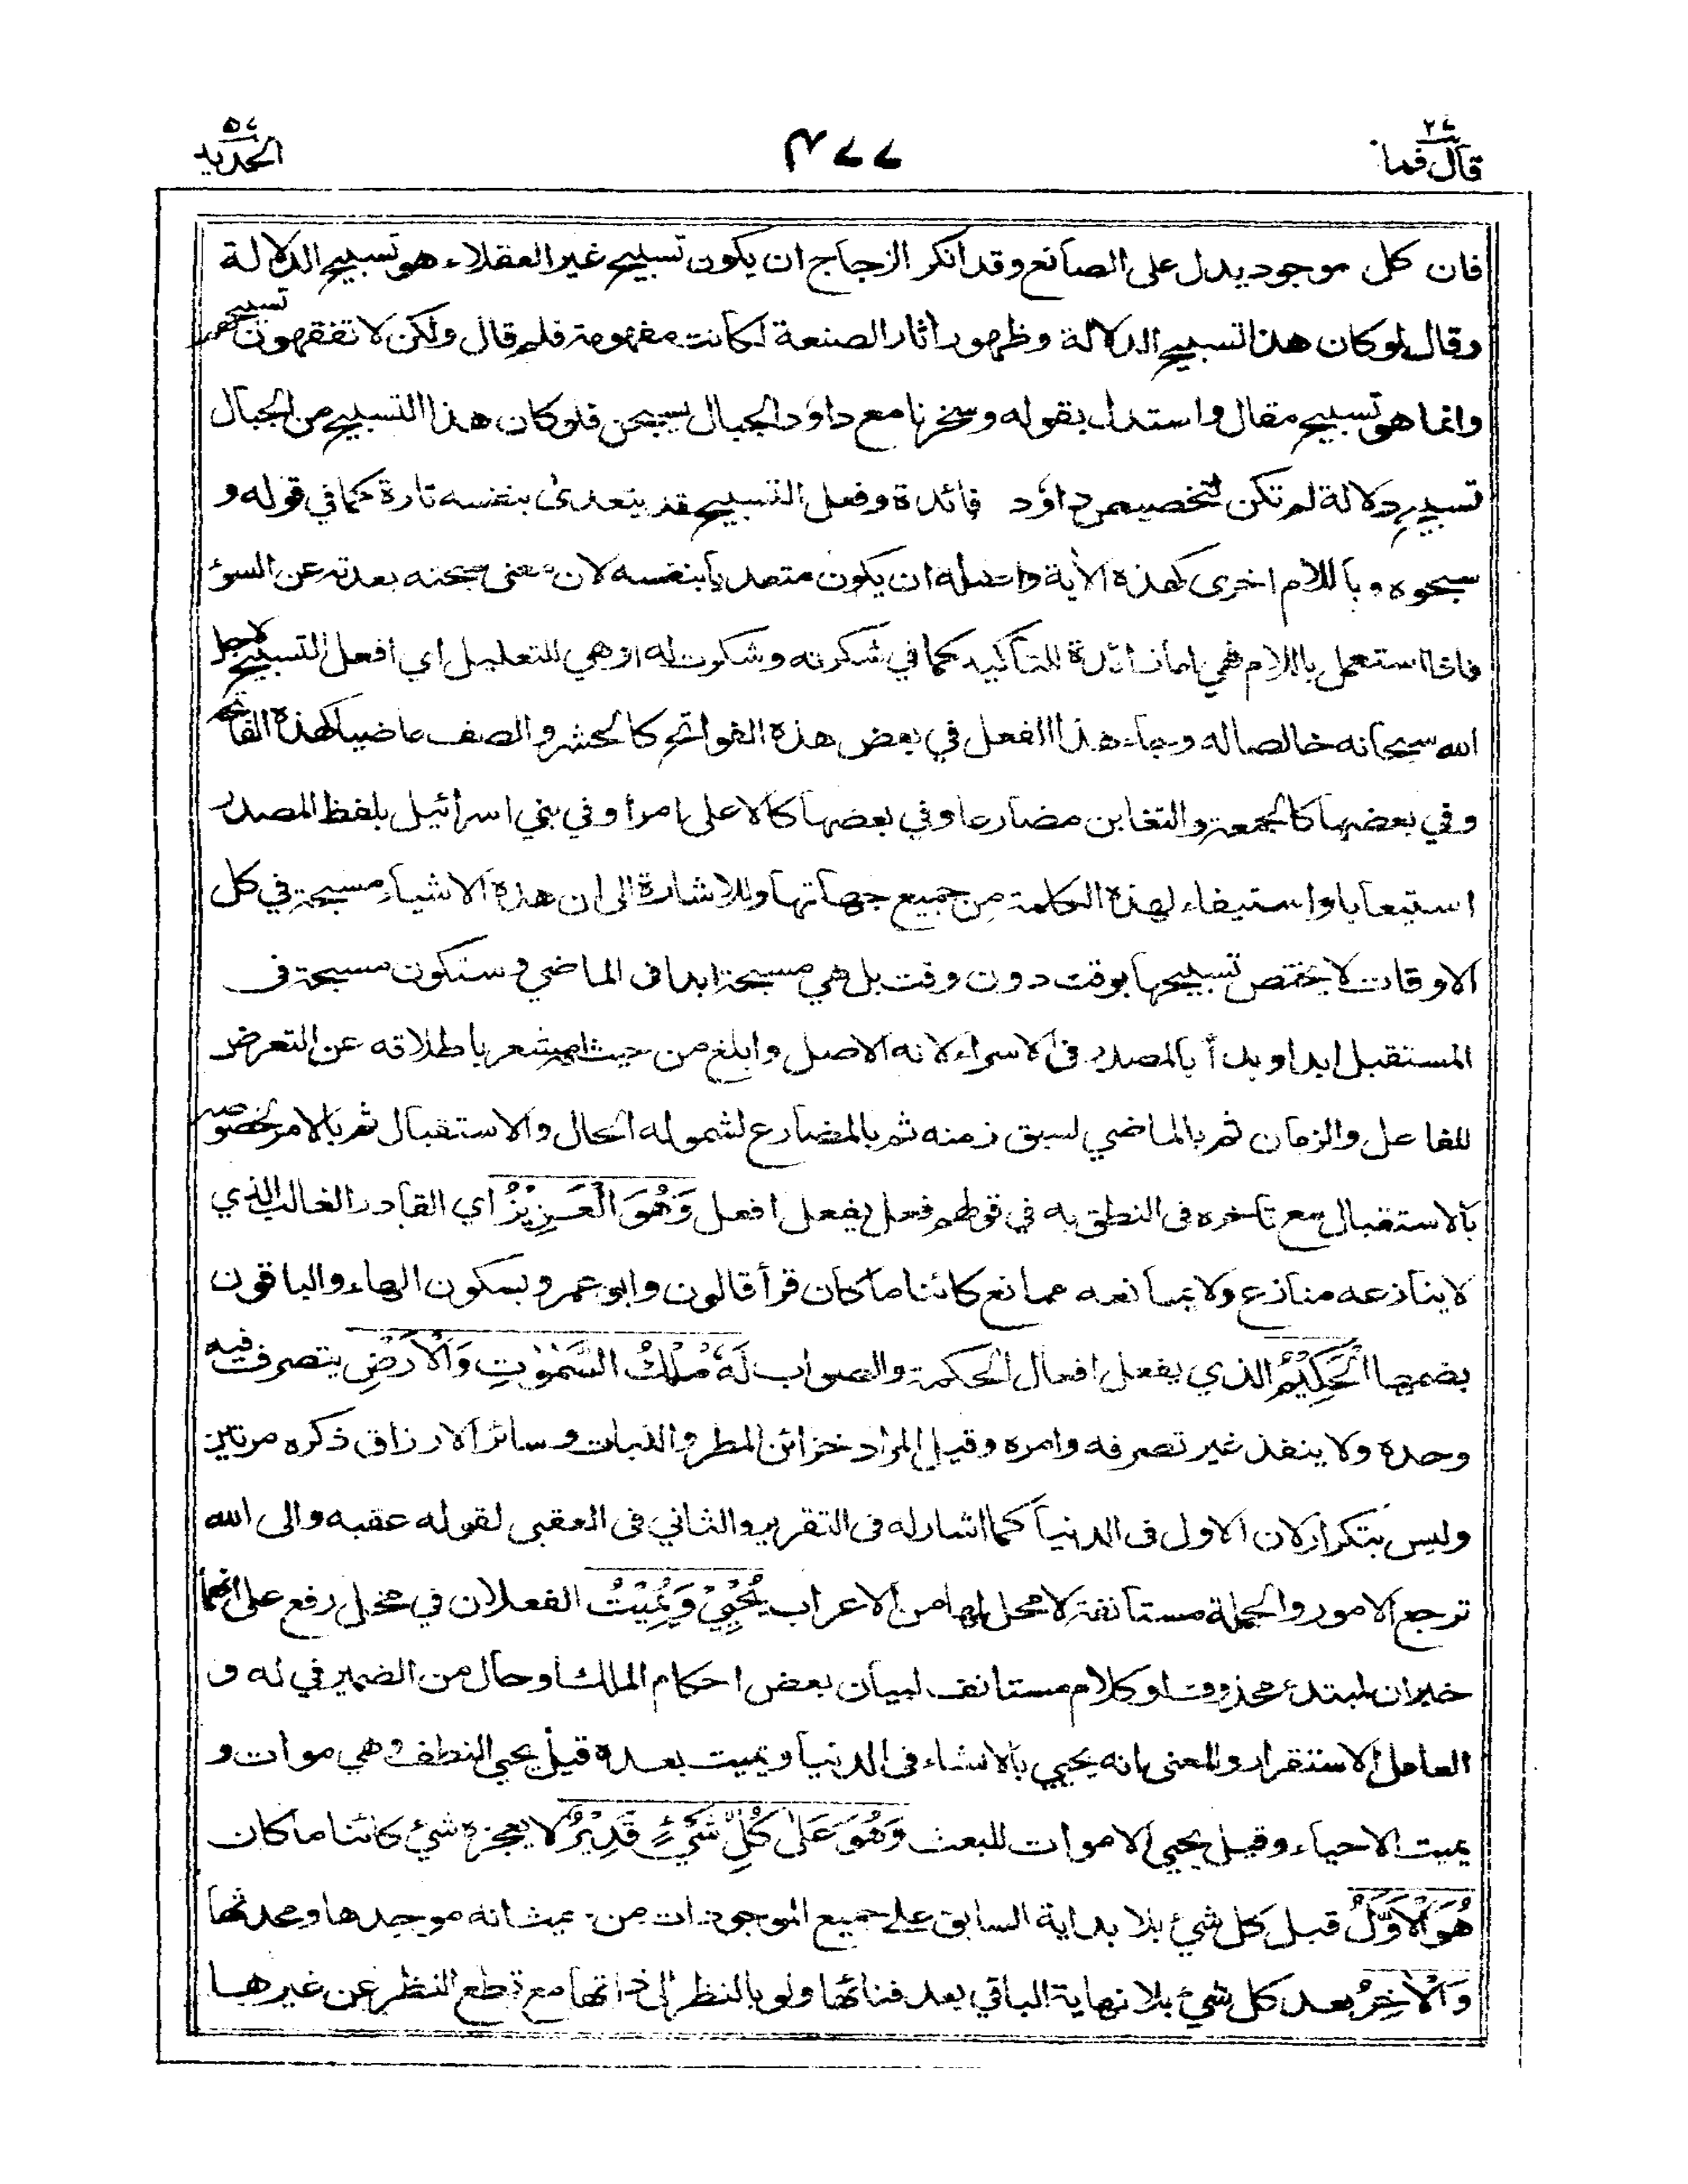 قال فما ٢٧
٤٧٧
الحديد ٥٧
فان كل موجود يدل على الصانع وقد انكر الزجاج ان يكون تسبيح غير العقلاء هو تسبيح الدلالة
وقال لو كان هذا تسبيح الدلالة وظهور اٰثار الصنعة لكانت مفهومة فلم قال ولكن لا تفقهون تسبيحهم
وانما هو تسبيح مقال واستدل بقوله وسخرنا مع داؤد الجبال يسبحن فلو كان هذا التسبيح من الجبال
تسبيح دلالة لم تكن لتخصيص داؤد فائدة وفعل التسبيح قد يتعدى بنفسه تارة كما في قوله و
سبحوه وباللام اخرى كهذه الاٰية واصله ان يكون متعديا بنفسه لان معنى سبحته بعدته عن السوء
فاذا استعمل باللام فهي اما زائدة للتاكيد كما في شكرته وشكرت له او هي للتعليل اي افعل التسبيح لاجل
الله سبحانه خالصا له وجاء هذا الفعل في بعض هذه الفواتح كالحشر والصف ماضيا كهذه الفاتحة
وفي بعضها كالجمعة والتغابن مضارعا وفي بعضها كالاعلى امرا وفي بني اسرائيل بلفظ المصدر
استيعابا واستيفاء لهذه الكلمة من جميع جهاتها وللاشارة الى ان هذه الاشياء مسبحة في كل
الاوقات لا يختص تسبيحها بوقت دون وقت بل هي مسبحة ابدا فى الماضي وستكون مسبحة فى
المستقبل ابدا وبدأ بالمصدر فى الاسراء لانه الاصل وابلغ من حيث انه مشعر باطلاقه عن التعرض
للفاعل والزمان ثم بالماضي لسبق زمنه ثم بالمضارع لشموله الحال والاستقبال ثم بالامر لخصوصه
بالاستقبال مع تاخره فى النطق به في قولهم فعل يفعل افعل وَهُوَ الْعَزِيْزُ اي القادر الغالب الذي
لا ينازعه منازع ولا يمانعه ممانع كائنا ما كان قرأ قالون وابو عمرو بسكون الهاء والباقون
بضمها الْحَكِيْمُ الذي يفعل افعال الحكمة والصواب لَهٗ مُلْكُ السَّمٰوٰتِ وَالْاَرْضِ يتصرف فيه
وحده ولا ينفذ غير تصرفه وامره وقيل المراد خزائن المطر والنبات وسائر الارزاق ذكره مرتين
وليس بتكرار لان الاول فى الدنيا كما اشار له فى التقرير والثاني فى العقبى لقوله عقبه والى الله
ترجع الامور والجملة مستانفة لا محل لها من الاعراب يُحْيِيْ وَيُمِيْتُ الفعلان في محل رفع على انهما
خبران لمبتدء محذوف او كلام مستانف لبيان بعض احكام الملك او حال من الضمير في له و
العامل الاستقرار والمعنى انه يحيي بالانشاء فى الدنيا ويميت بعده قيل يحيي النطف وهي موات و
يميت الاحياء وقيل يحيي الاموات للبعث وَهُوَ عَلٰى كُلِّ شَيْءٍ قَدِيْرٌ لا يعجزه شئ كائنا ما كان
هُوَ الْاَوَّلُ قبل كل شئ بلا بداية السابق على جميع الموجودات من حيث انه موجدها ومحدثها
وَالْاٰخِرُ بعد كل شئ بلا نهاية الباقي بعد فنائها ولو بالنظر الى ذاتها مع قطع النظر عن غيرها